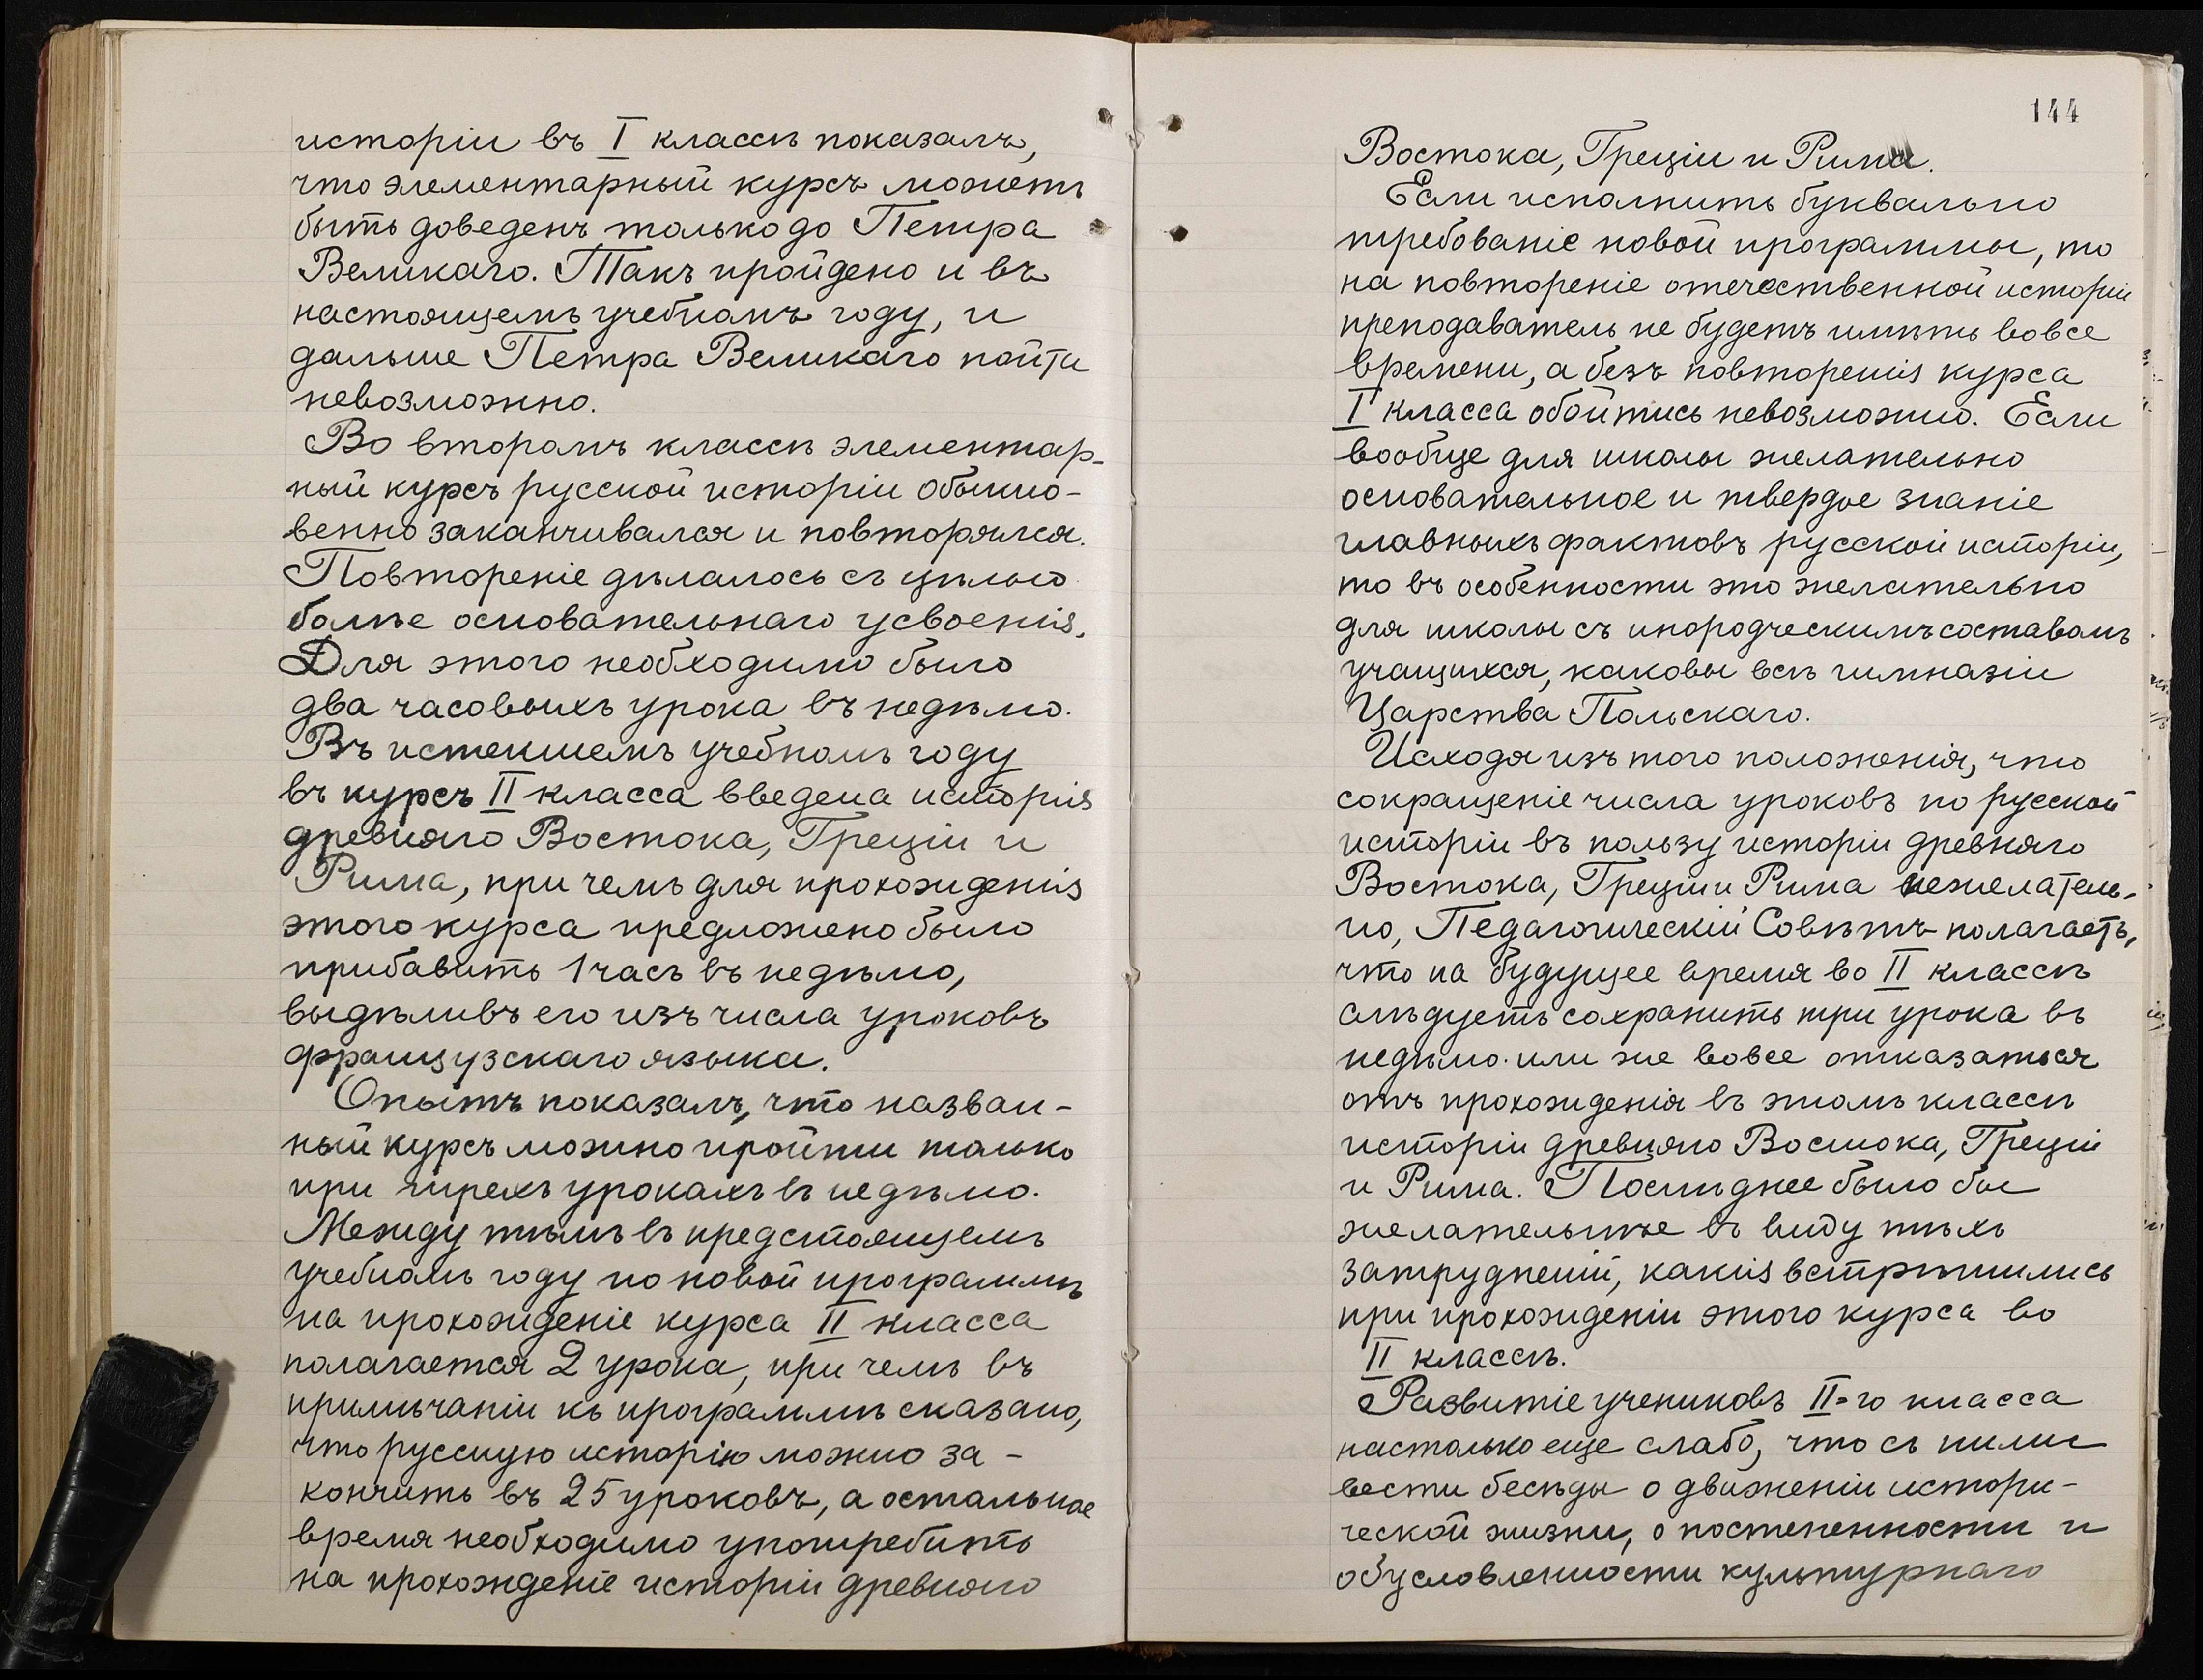 исторіи въ I классѣ показалъ,
что элементарный курсъ можетъ
быть доведенъ только до Петра
Великаго. Такъ пройдено и въ
настоящемъ учебномъ году, и
дальше Петра Великаго пойти
невозможно.
Во второмъ классѣ элементар-
ный курсъ русской исторіи обыкно-
венно заканчивался и повторялся.
Повтореніе дѣлалось съ цѣлью
болѣе основательнаго усвоенія.
Для этого необходимо было
два часовыхъ урока въ недѣлю.
Въ истекшемъ учебномъ году
въ курсъ II класса введена исторія
древняго Востока, Греціи и
Рима, при чемъ для прохожденія
этого курса предложено было
прибавить 1 часъ въ недѣлю,
выдѣливъ его изъ числа уроковъ
французскаго языка.
Опытъ показалъ, что назван-
ный курсъ можно пройти только
при трехъ урокахъ въ недѣлю.
Между тѣмъ въ предстоящемъ
учебномъ году по новой программѣ
на прохожденіе курса II класса
полагается 2 урока, при чемъ въ
примѣчаніи къ программѣ сказано,
что русскую исторію можно за-
кончить въ 25 уроковъ, а остальное
время необходимо употребить
на прохожденіе исторіи древняго
144
Востока, Греціи и Рима.
Если исполнить буквально
требованіе новой программы, то
на повтореніе отечественной исторіи
преподаватель не будетъ имѣть вовсе
времени, а безъ повторенія курса
I класса обойтись невозможно. Если
вообще для школы желательно
основательное и твердое знаніе
главныхъ фактовъ русской исторіи,
то въ особенности это желательно
для школы съ инородческимъ составомъ
учащихся, каковы всѣ гимназіи
Царства Польскаго.
Исходя изъ того положенія, что
сокращеніе числа уроковъ по русской
исторіи въ пользу исторіи древняго
Востока, Греціи и Рима нежелатель-
но, Педагогическій Совѣтъ полагаетъ,
что на будущее время во II классѣ
слѣдуетъ сохранить три урока въ
недѣлю или же вовсе отказаться
отъ прохожденія въ этомъ классѣ
исторіи древняго Востока, Греціи
и Рима. Послѣднее было бы
желательнѣе въ виду тѣхъ
затрудненій, какія встрѣтились
при прохожденіи этого курса во
II классѣ.
Развитіе учениковъ II-го класса
настолько еще слабо, что съ ними
вести бесѣды о движеніи истори-
ческой жизни, о постепенности и
обусловленности культурнаго